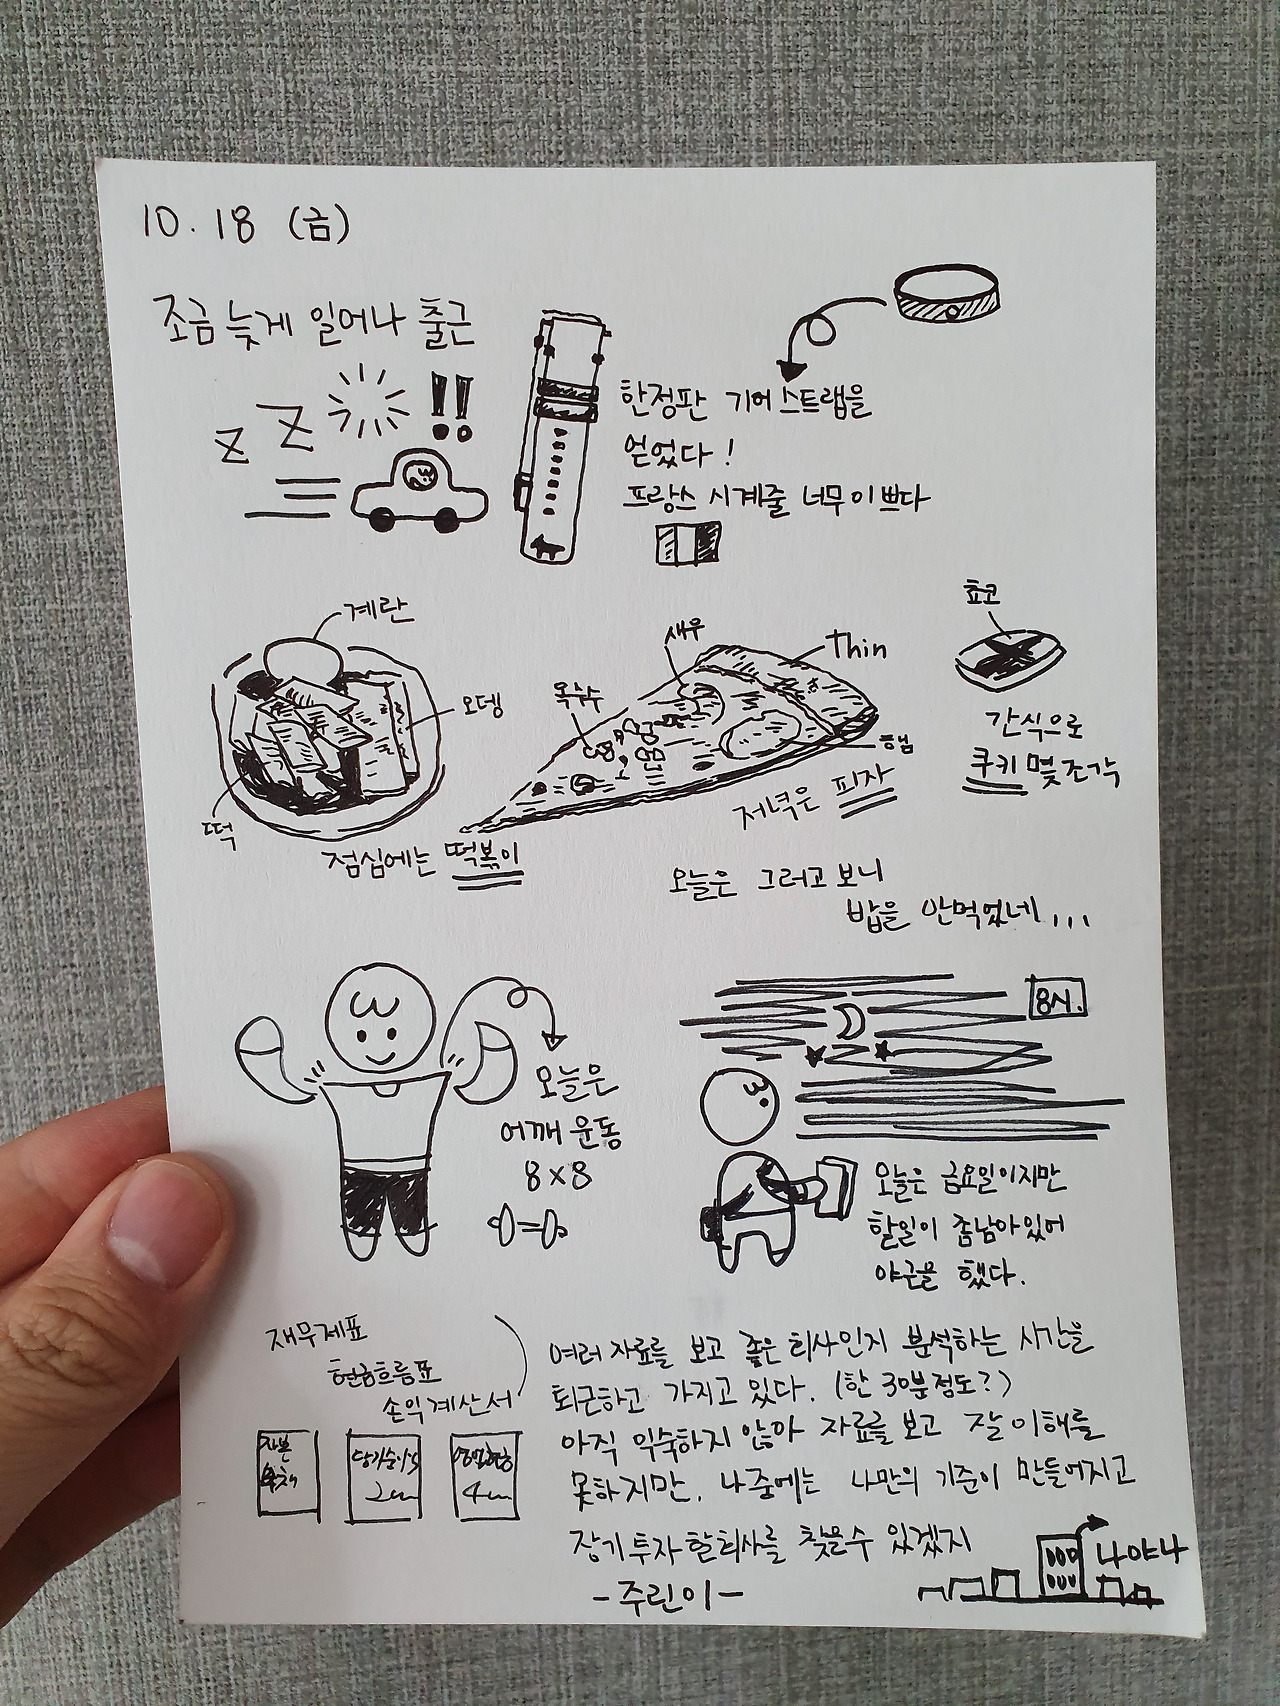 10.18 (금)
조금 늦게 일어나 출근
z Z !!
한정판 기어 스트랩을
얻었다!
프랑스 시계줄 너무 이쁘다
계란
오뎅
떡
점심에는 떡볶이
새우
Thin
옥수수
햄
저녁은 피자
쵸코
간식으로
쿠키 몇 조각
오늘은 그러고 보니
밥을 안먹었네...
오늘은
어깨 운동
8×8
8시.
오늘은 금요일이지만
할일이 좀 남아있어
야근을 했다.
재무제표
현금흐름표
손익계산서
자본
부채
당기순이익
영업현금
여러 자료를 보고 좋은 회사인지 분석하는 시간을
퇴근하고 가지고 있다. (한 30분정도?)
아직 익숙하지 않아 자료를 보고 잘 이해를
못하지만, 나중에는 나만의 기준이 만들어지고
장기 투자 할 회사를 찾을수 있겠지
-주린이-
나야나